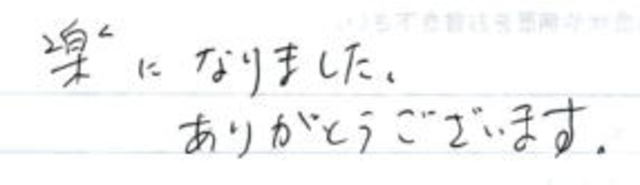 楽に なりました。
ありがとうございます。